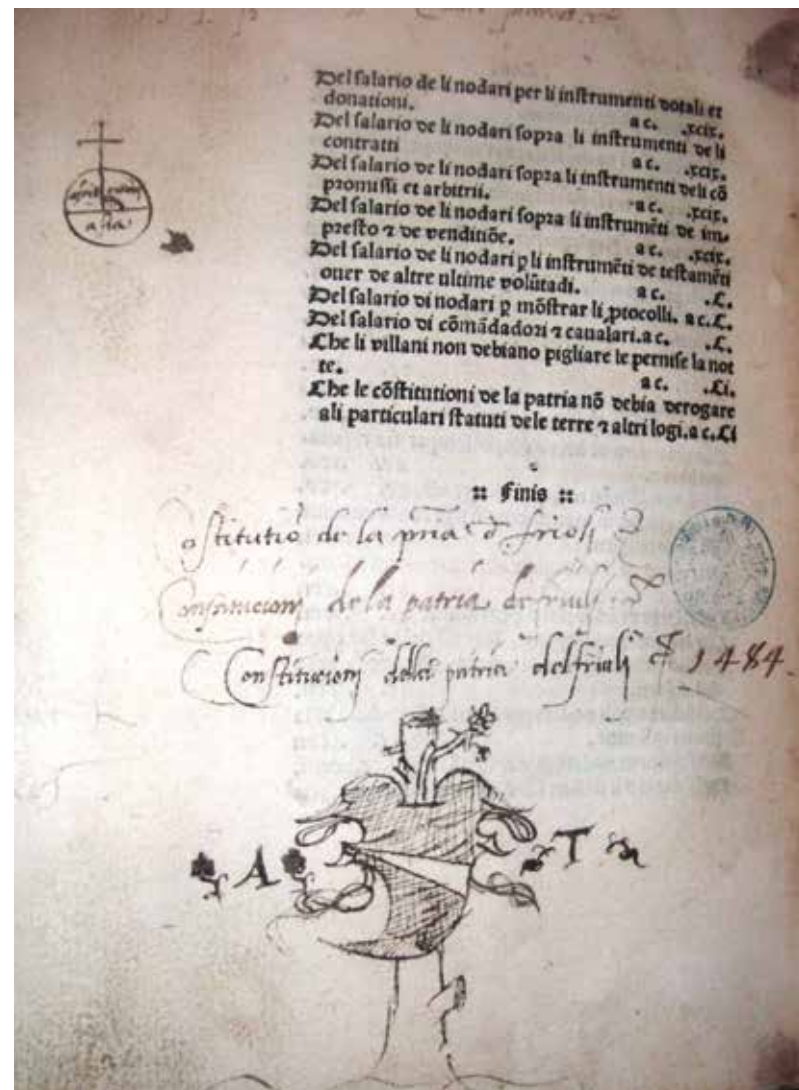 Del salario de li nodari per li instrumenti dotali et
donationi. a c. .xcix.
Del salario de li nodari sopra li instrumenti de li
contratti a c. .xcix.
Del salario de li nodari sopra li instrumenti deli cõ
promissi et arbitrii. a c. .xcix.
Del salario de li nodari sopra li instrumẽti de im-
presto ⁊ de venditiõe. a c. .xcix.
Del salario de li nodari ꝑ li instrumẽti de testamẽti
ouer de altre ultime volũtadi. a c. .C.
Del salario di nodari ꝑ mõstrar li ꝓtocolli. a c. .C.
Del salario di cõmãdadori ⁊ caualari. a c. .C.
Che li villani non debiano pigliare le pernise la not
te. a c. .Ci.
Che le cõstitutioni de la patria nõ debia derogare
ali particulari statuti dele terre ⁊ altri logi. a c. Ci
:: Finis ::
ostitutiõ de la pr̃ia
de la patria
Constitucionj della patria del friuli 1484.
A T